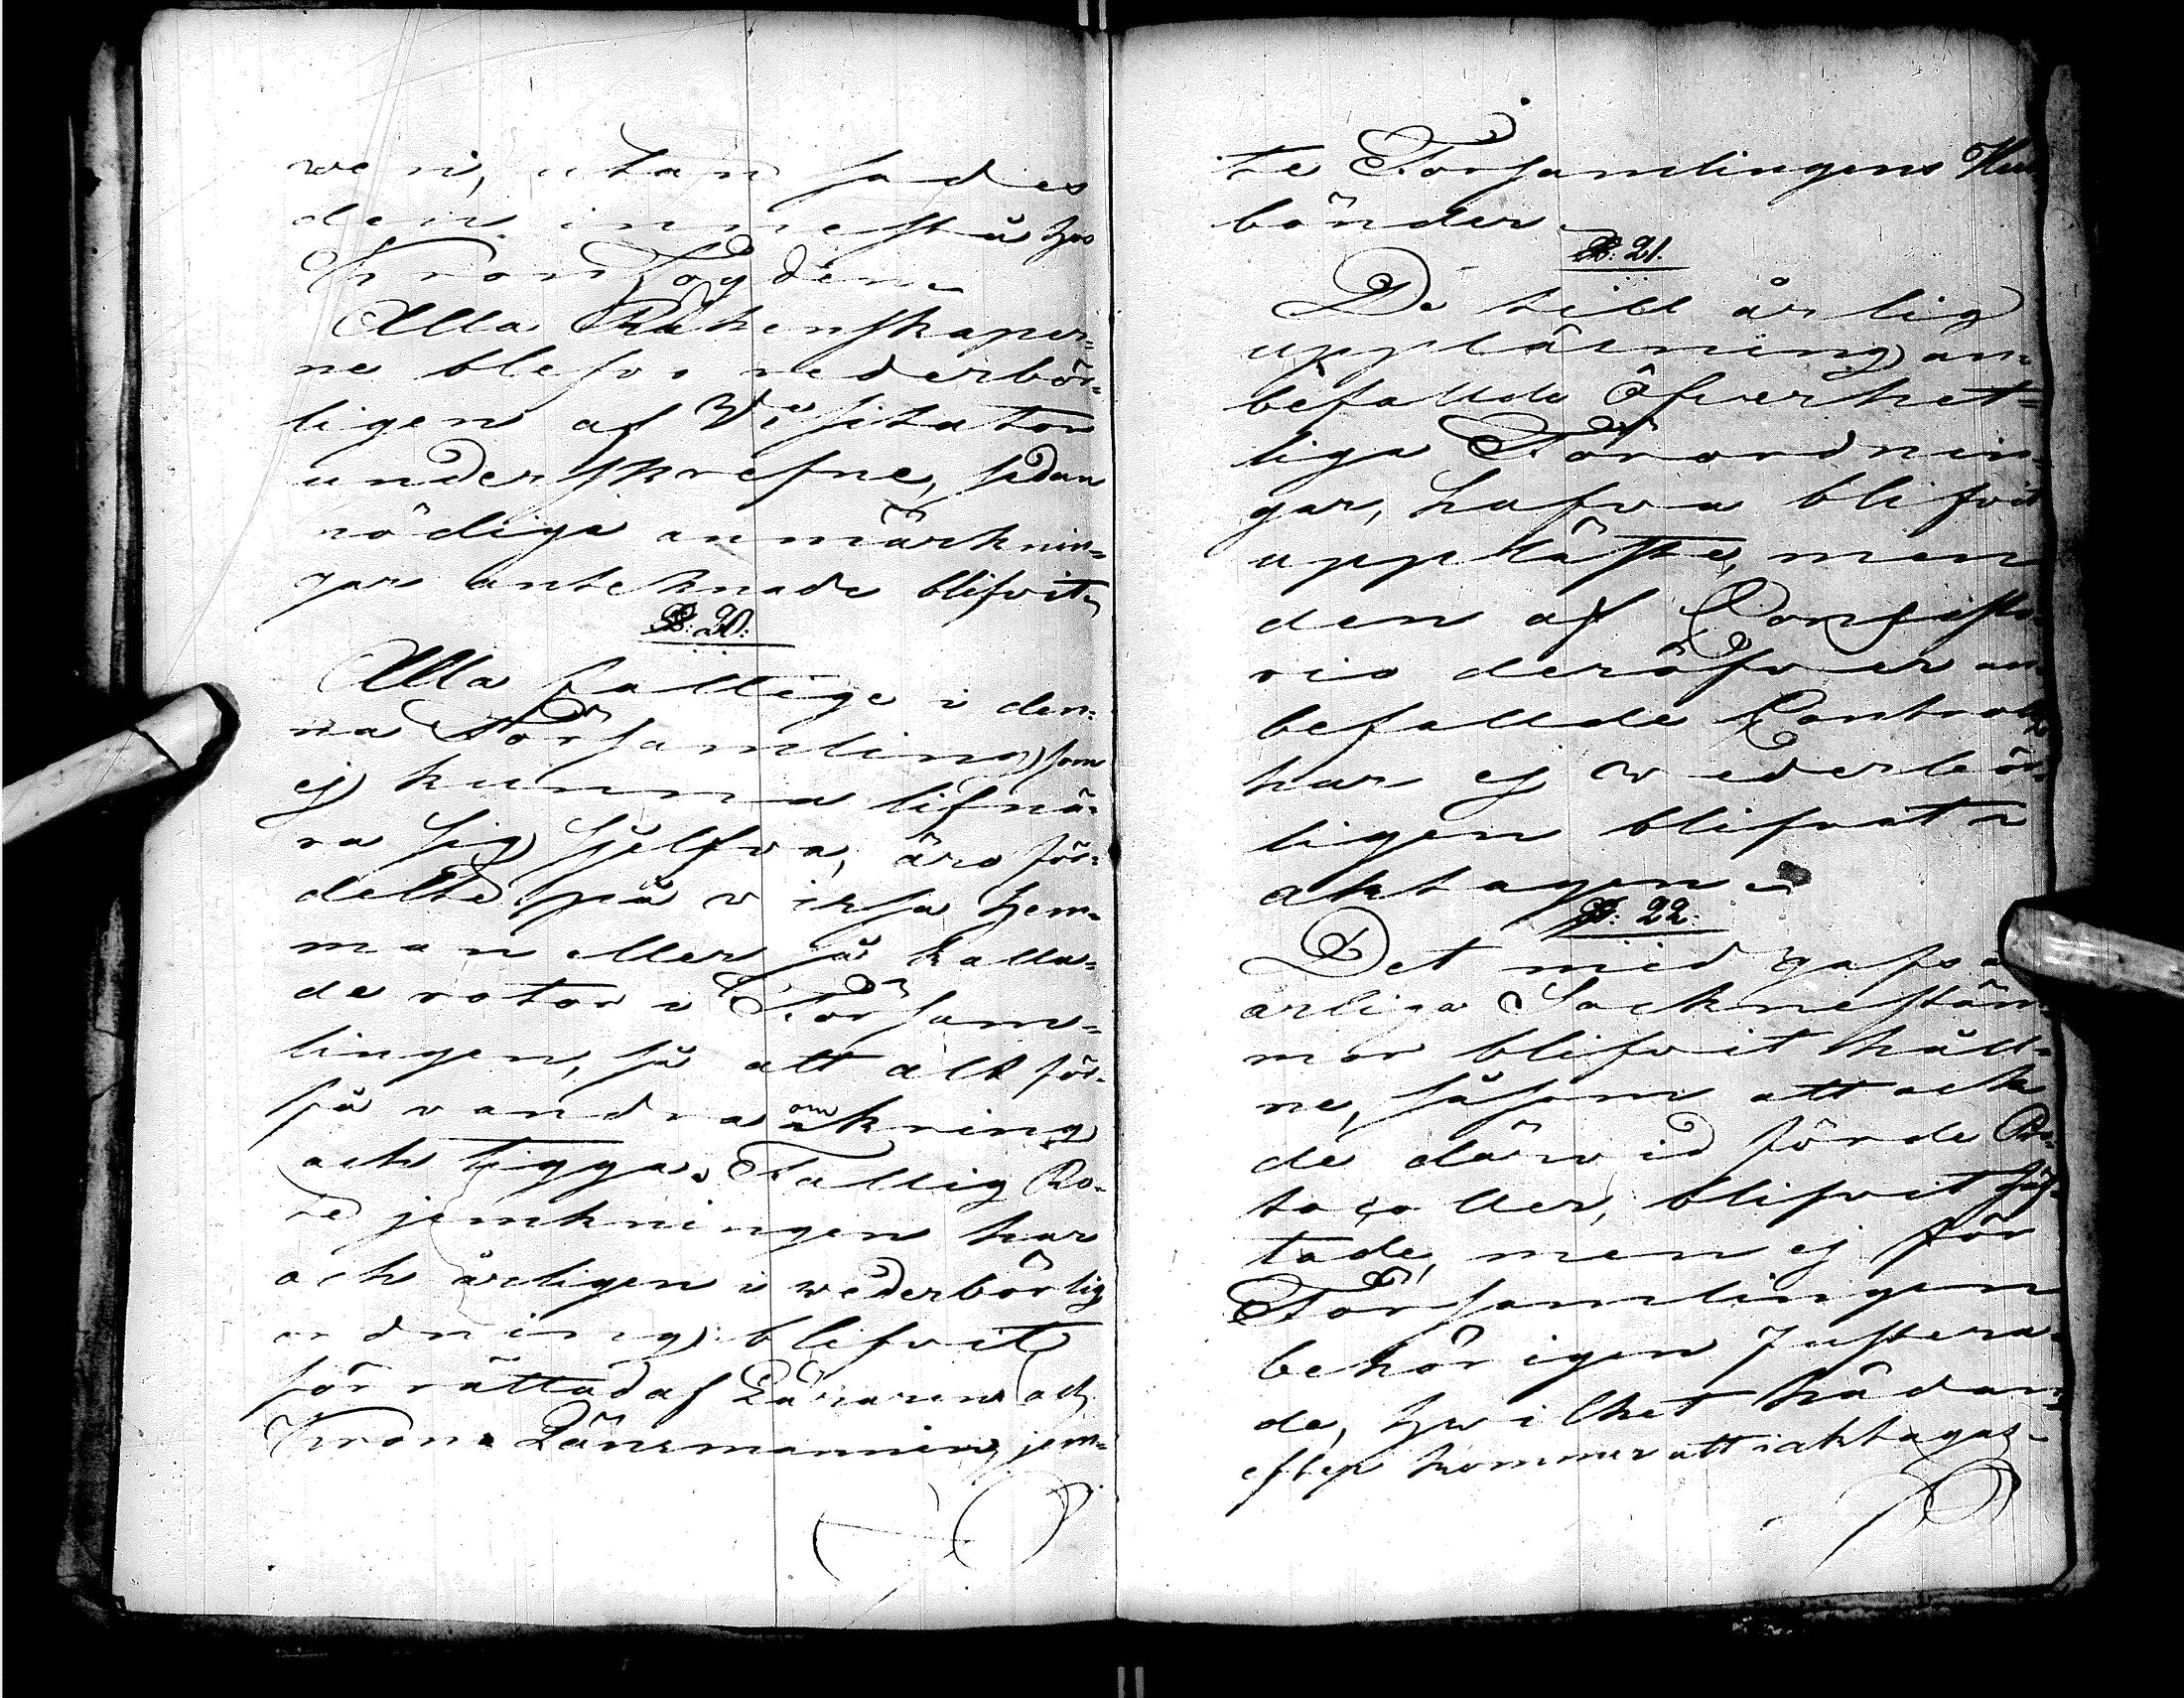 wen, utan sades
den innestå hos
Kronfogden.
Alla Räkenskaper-
ne blefvo vederbör-
ligen af Visitator
underskrefne, sedan
nödiga anmärknin-
gar anteknade blifvit.
§. 20.
Alla fattige i den-
na Församling som
ej kunna lifnä-
ra sig sjelfva, äro för-
delte på vissa hem-
man eller så kalla-
de rotor i Försam-
lingen, så att alt för-
få vandra omkring
och tigga. Fattig Ro-
te jemkningen har
och årligen i wederbörlig
ordning blifvit
förrättad af Läraren och
Krono Länsmannen jem-
te Församlingens Hus-
bönder.
§. 21.
De till årlig
uppläsning an-
befallde Öfwerhet-
liga Förordnin-
gar, hafva blifvit
uppläste, men
den af Consisto-
rio deröfver an-
befallde Controll
har ej wederbör-
ligen blifvit i
akt tagen.
§. 22.
Det medgafs a
årliga Sockenestäm-
mor blifvit håll-
ne, såsom att ock
de därwid förde Pro-
tocoller, blifvit häf-
tade, men ej för
Församlingen
behörigen Justera-
de, hwilket hädan-
efter kommer att iakttagas.